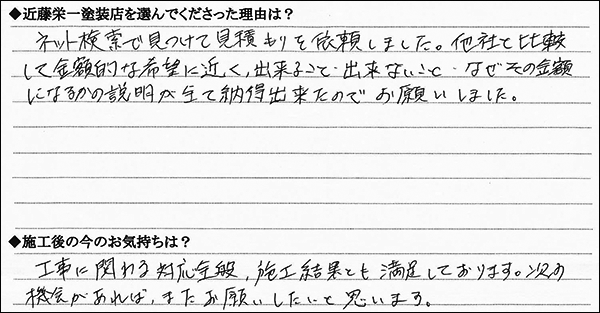 ◆近藤栄一塗装店を選んでくださった理由は？
ネット検索で見つけて見積もりを依頼しました。他社と比較
して金額的な希望に近く、出来ること・出来ないこと・なぜその金額
になるかの説明が全て納得出来たのでお願いしました。
◆施工後の今のお気持ちは？
工事に関わる対応全般、施工結果とも満足しております。次の
機会があれば、またお願いしたいと思います。